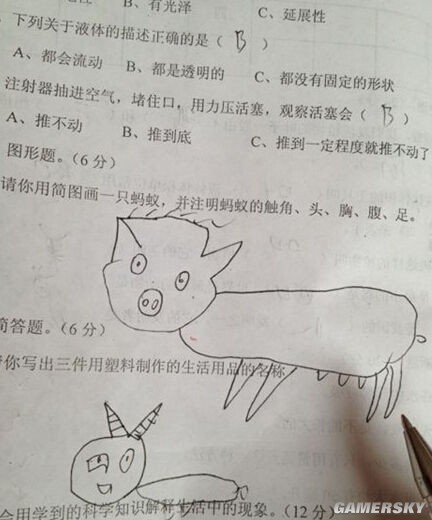 B、有光泽 C、延展性
下列关于液体的描述正确的是（B）
A、都会流动 B、都是透明的 C、都没有固定的形状
注射器抽进空气，堵住口，用力压活塞，观察活塞会（B）
A、推不动 B、推到底 C、推到一定程度就推不动了
图形题。（6分）
请你用简图画一只蚂蚁，并注明蚂蚁的触角、头、胸、腹、足。
简答题。（6分）
你写出三件用塑料制作的生活用品的名称
会用学到的科学知识解释生活中的现象。（12分）
GAMERSKY